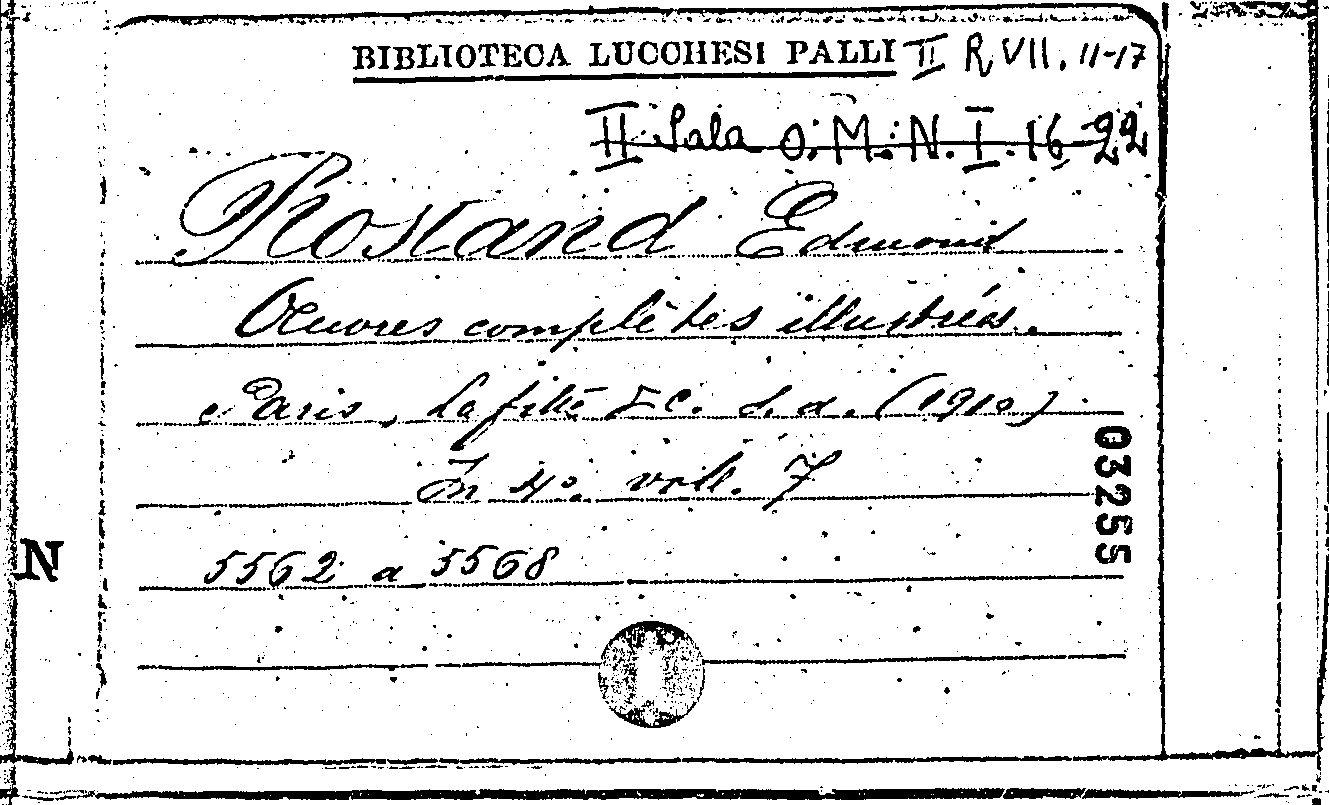 BIBLIOTECA LUCCHESI PALLI II R VII. 11-17
II Sala O. M. N. I. 16-22
Rostand Edmond
Oeuvres complètes illustrées.
Paris, Lafitte & C. s. d. (1910)
In 4º. voll. 7
03255
N
5562 a 5568